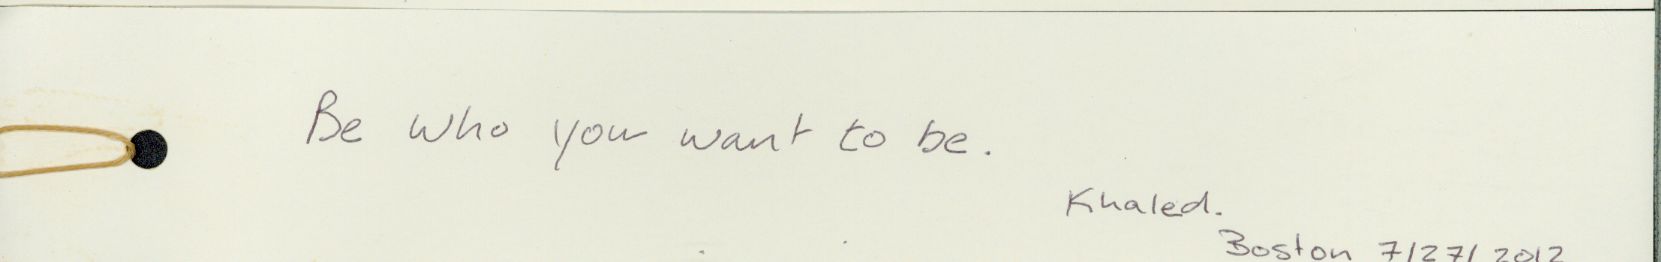 Be who you want to be.
Khaled.
Boston 7/27/2012